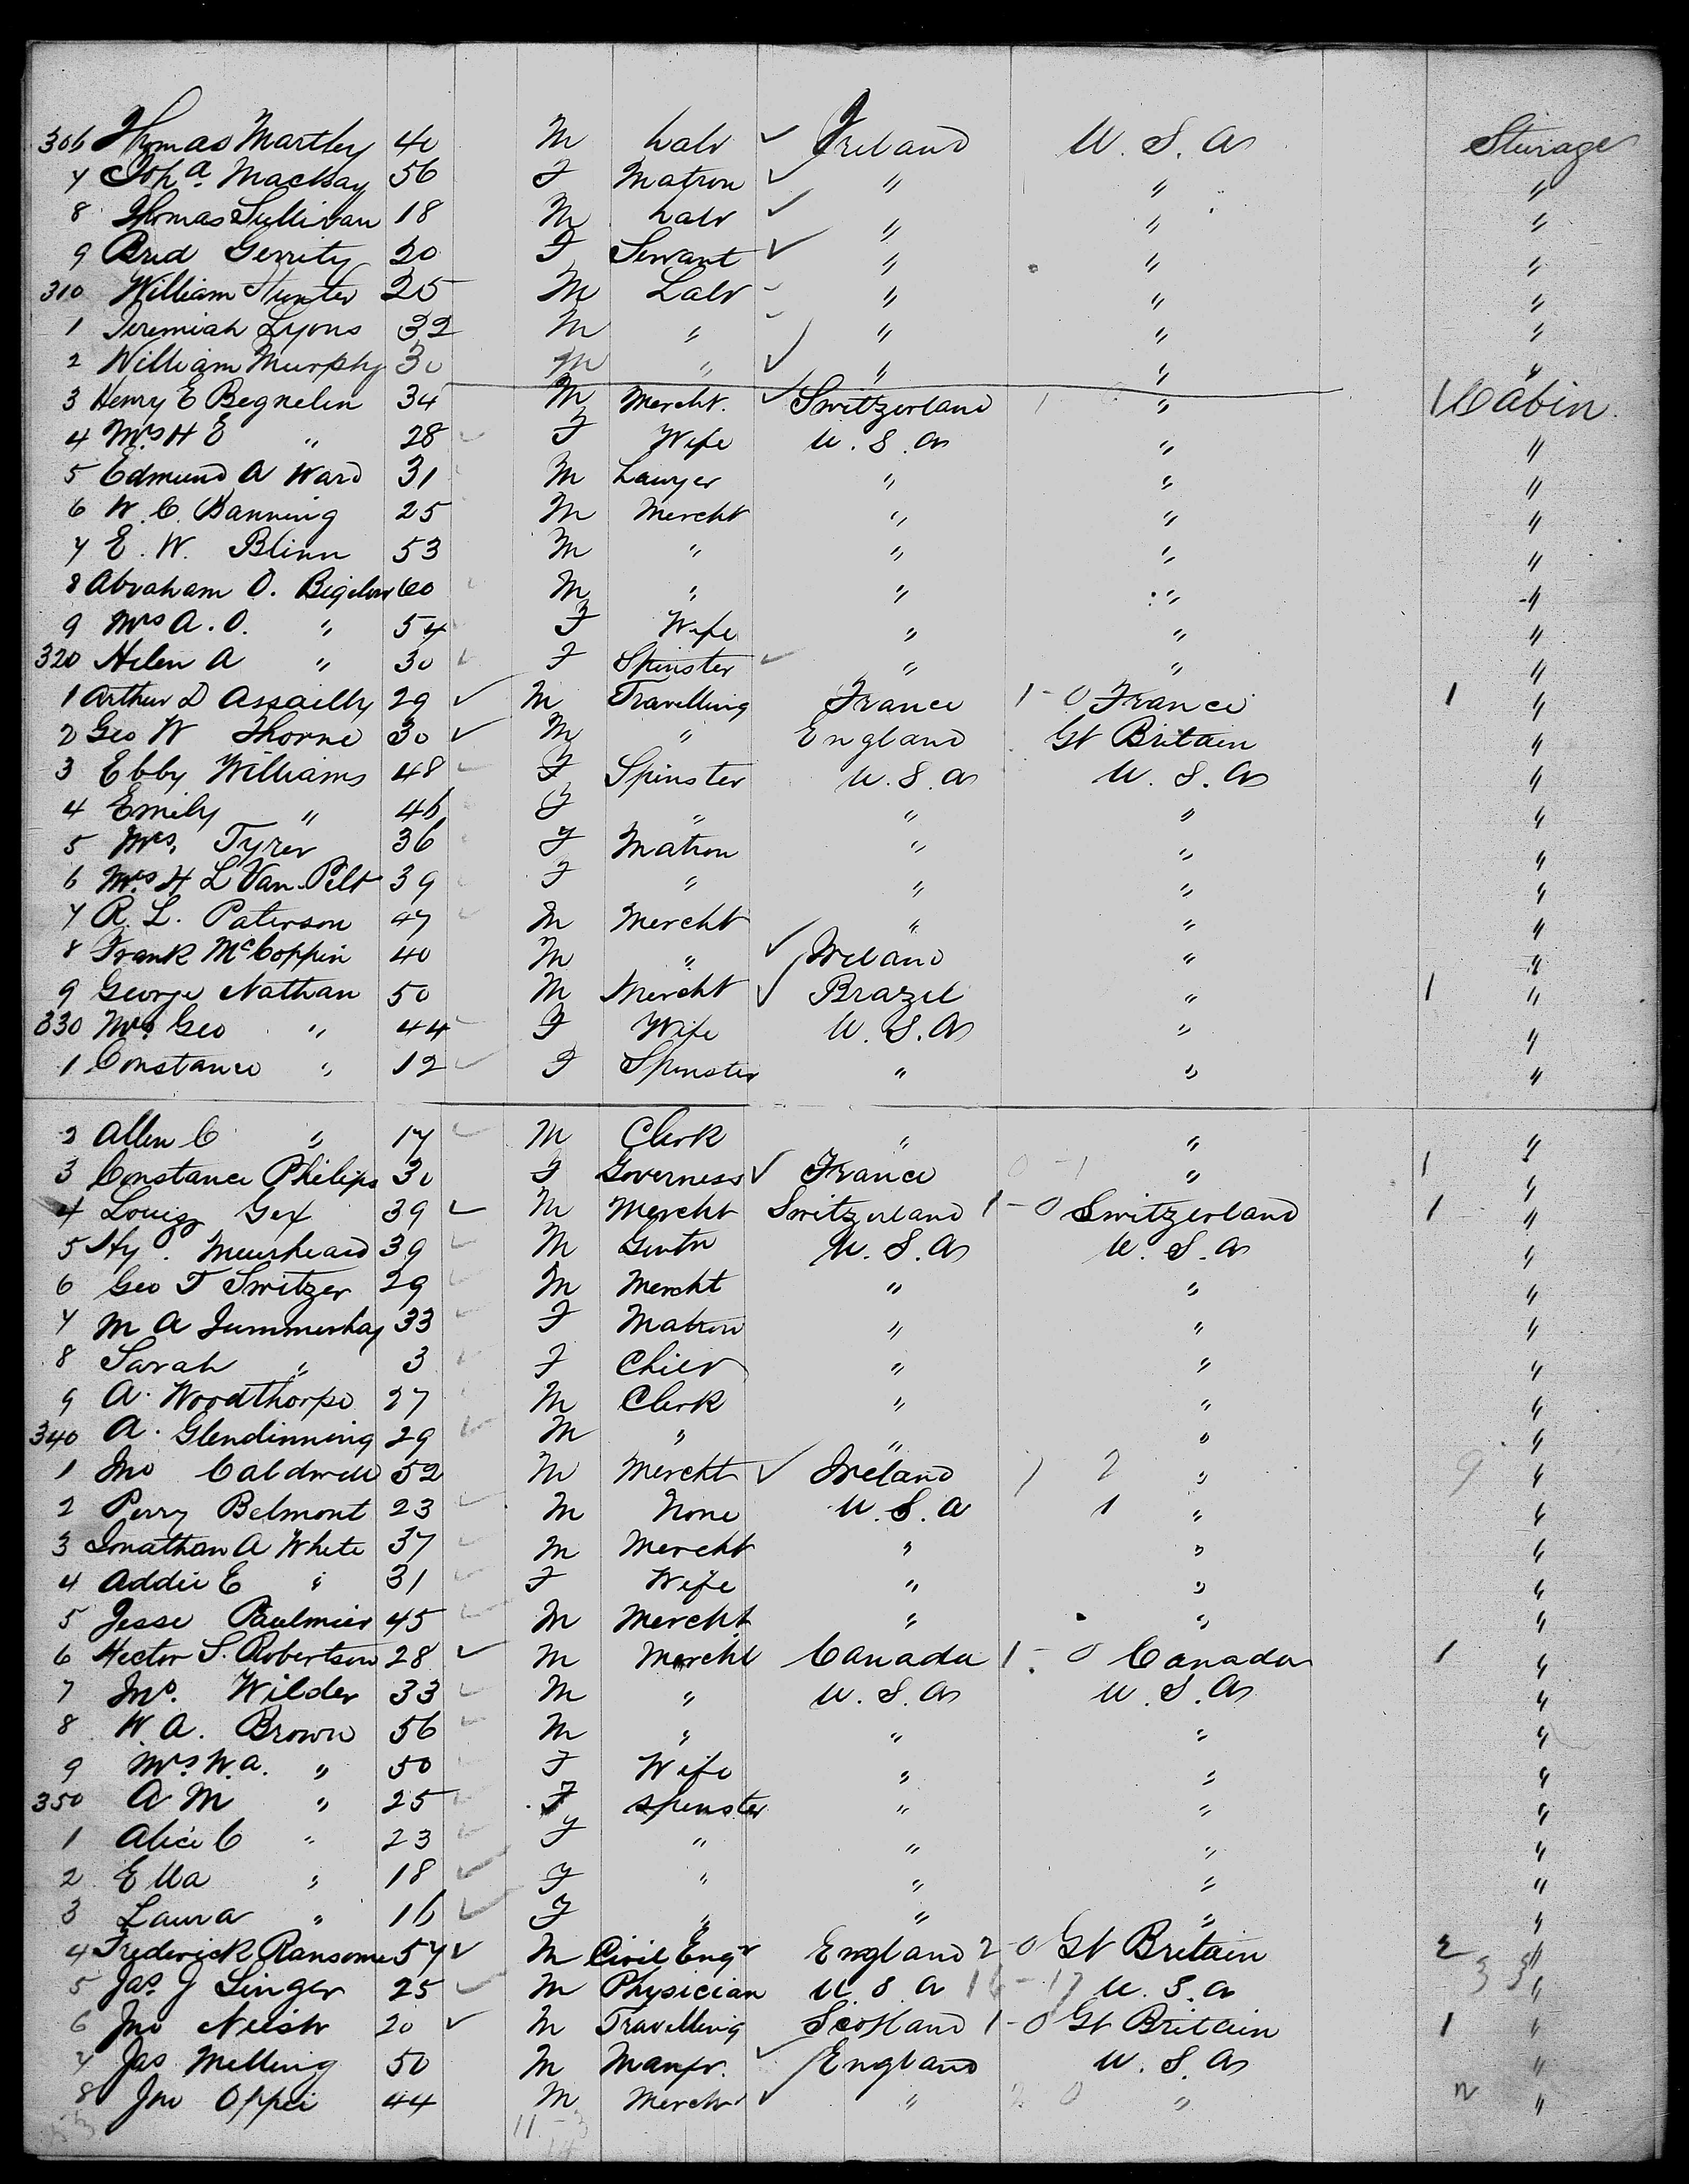 306 Thomas Martley 40 M Labr ✓ Ireland U.S.A Sturage
7 Joha. Mackay 56 F Matron ✓ " " "
8 Thomas Sullivan 18 M Labr ✓ " " "
9 Brid Gerrity 20 F Servant ✓ " " "
310 William Hunter 25 M Labr " " "
1 Jeremiah Lyons 32 M " " " "
2 William Murphy 30 M " ✓ " " "
3 Henry E Begnelin 34 M Mercht. ✓ Switzerland 1 " 1 Cabin
4 Mrs H E " 28 F Wife U.S.A " "
5 Edmund A Ward 31 M Lawyer " " "
6 W. C. Banning 25 M Mercht " " "
7 E. W. Blinn 53 M " " " "
8 Abraham O. Bigelow 60 M " " " "
9 Mrs A. O. " 54 F Wife " " "
320 Helen A " 30 F Spinster ✓ " " "
1 Arthur D Assailly 29 ✓ M Travelling France 1-0 France 1 "
2 Geo W Thorne 30 ✓ M " England Gt Britain "
3 Ebby Williams 48 F Spinster U.S.A U.S.A "
4 Emily " 46 F " " " "
5 Mrs. Tyrer 36 F Matron " " "
6 Mrs. H L Van Pelt 39 F " " " "
7 R. L. Paterson 47 M Mercht " " "
8 Frank McCoppin 40 M " ✓ Ireland " "
9 George Nathan 50 M Mercht ✓ Brazil " 1 "
330 Mrs. Geo " 44 F Wife U.S.A " "
1 Constance " 12 F Spinster " " "
2 Allen C " 17 M Clerk " " "
3 Constance Philips 30 F Governess ✓ France 0-1 " 1 "
4 Louis Gex 39 ✓ M Mercht Switzerland 1-0 Switzerland 1 "
5 Hy. Muirhead 39 M Gentn U.S.A U.S.A "
6 Geo T Switzer 29 M Mercht " " "
7 M A Summerhay 33 F Matron " " "
8 Sarah " 3 F Child " " "
9 A. Woodthorpe 27 M Clerk " " "
340 A. Glendinning 29 M " " " "
1 Jno Caldwell 52 M Mercht ✓ Ireland " 9 "
2 Perry Belmont 23 M None U.S.A 1 " "
3 Jonathan A White 37 M Mercht " " "
4 Addie E " 31 F Wife " " "
5 Jesse Paulmier 45 M Mercht " " "
6 Hector S. Robertson 28 ✓ M Mercht Canada 1-0 Canada 1 "
7 Jno. Wilder 33 M " U.S.A U.S.A "
8 W. A. Brown 56 M " " " "
9 Mrs. W. A. " 50 F Wife " " "
350 A M " 25 F Spinster " " "
1 Alice C " 23 F " " " "
2 Ella " 18 F " " " "
3 Laura " 16 F " " " "
4 Frederick Ransome 57 ✓ M Civil Engr England 2-0 Gt Britain 2 "
5 Jas. J Singer 25 M Physician U.S.A 16-17 U.S.A 33 "
6 Jno Neish 20 ✓ M Travelling Scotland 1-0 Gt Britain 1 "
7 Jas Melling 50 M Manfr. ✓ England U.S.A "
8 Jno Oppei 44 M Mercht ✓ " " "